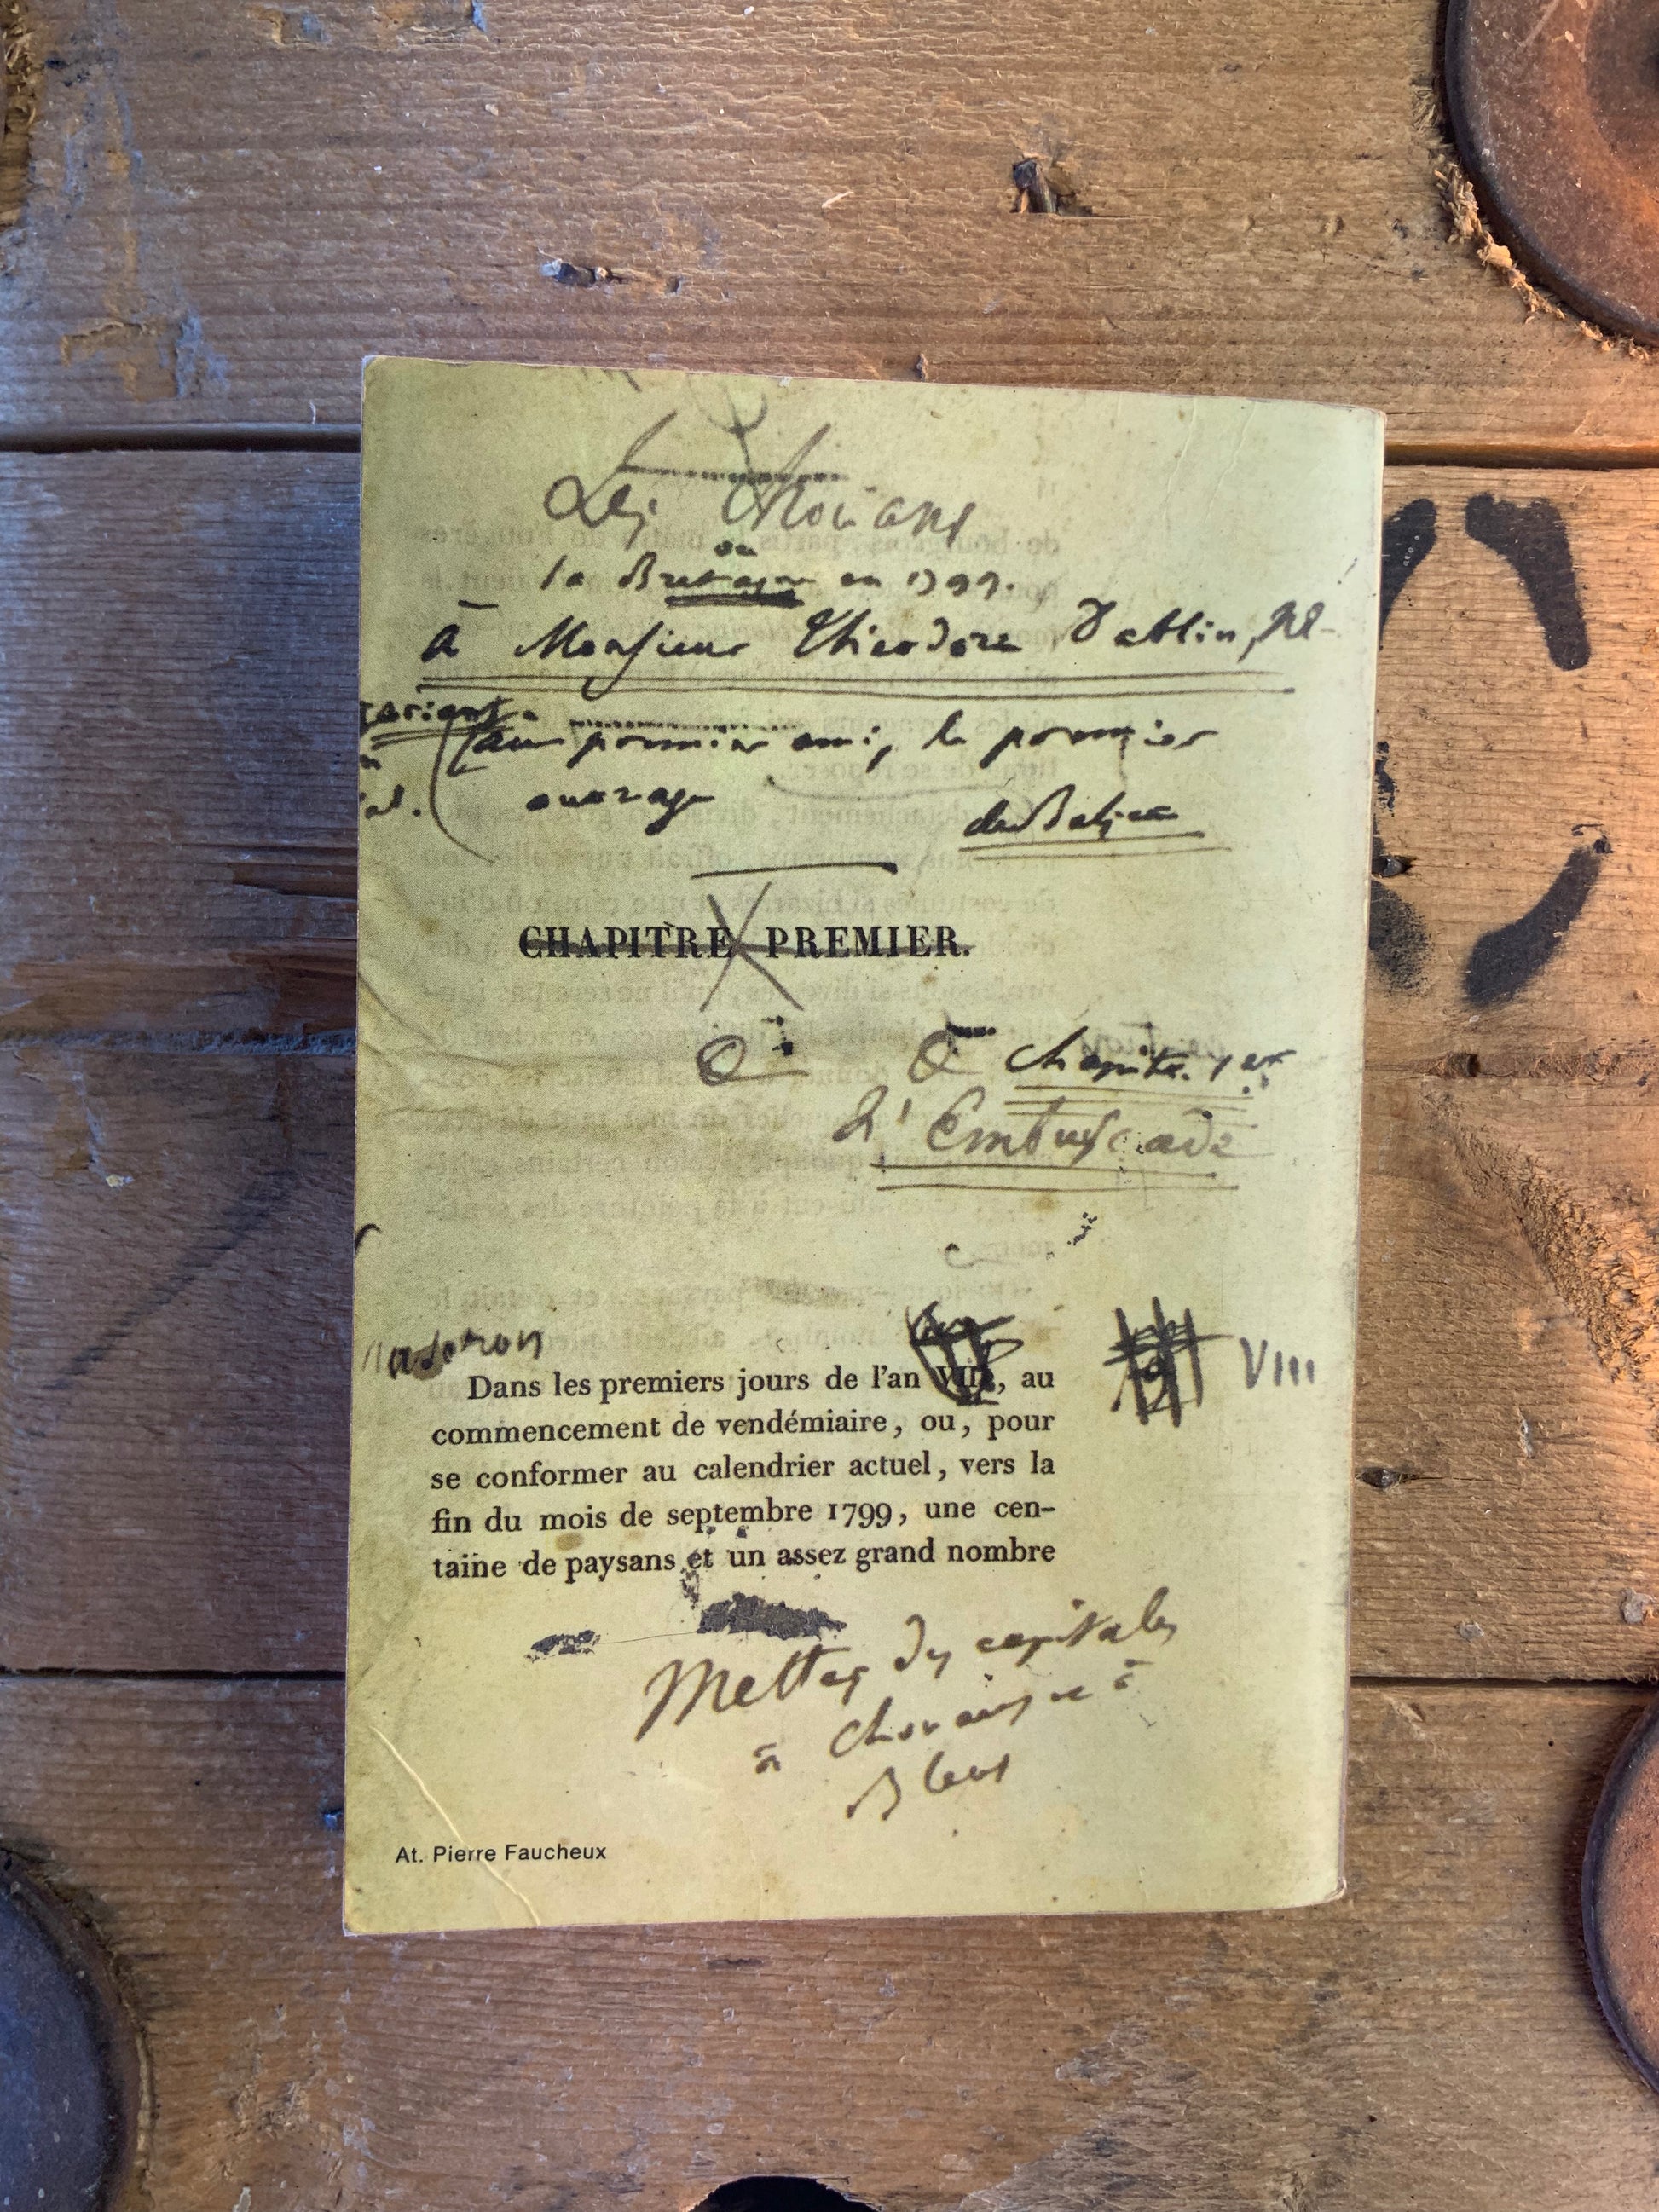 Les Chouans
ou
la Bretagne en 1799.
à Monsieur Théodore Dablin, Né-
gociant.
au premier ami, le premier
ouvrage
de Balzac
CHAPITRE PREMIER.
Chapitre 1er
L'Embuscade
Dans les premiers jours de l'an VIII, au
VIII
commencement de vendémiaire, ou, pour
se conformer au calendrier actuel, vers la
fin du mois de septembre 1799, une cen-
taine de paysans et un assez grand nombre
Mettez des capitales
à chouans et à
Bleus
At. Pierre Faucheux